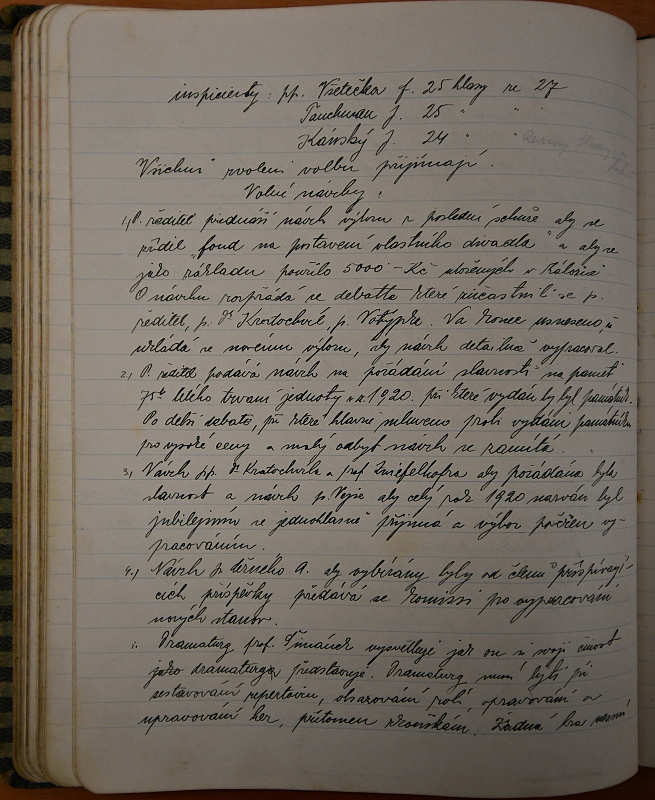 inspicienty: pp. Všetečka f. 25 hlasy ze 27
Tauchman f. 25 " "
Kánský f. 24 " "
Všichni zvolení volbu přijímají.
Volné návrhy:
1.) P. ředitel přednáší návrh výboru z poslední schůze aby se
zřídil „fond na postavení vlastního divadla" a aby se
jako základu použilo 5000 - Kč uložených v Záložně
O návrhu rozpřádá se debatta které zúčastnil se p.
ředitel, p. Dr Kratochvíl, p. Votypka. Na konec usneseno, a
ukládá se novému výboru, aby návrh detailně vypracoval.
2.) P. ředitel podává návrh na pořádání slavnosti na paměť
75ti letého trvání jednoty v r. 1920. při které vydán by byl památník.
Po delší debatě, při které hlavně mluveno proti vydání památníku
pro vysoké ceny a malý odbyt návrh se zamítá.
3.) Návrh pp. Dr Kratochvíla a prof. Kniefelhofra aby pořádána byla
slavnost a návrh p. Vejse aby celý rok 1920 nazván byl
jubilejním se jednohlasně přijímá a výbor pověřen vy-
pracováním.
4.) Návrh p. Černého A. aby vybírány byly od členů přispívají-
cích příspěvky předává se komissi pro vypracování
nových stanov.
Dramaturg prof. Šimánek vysvětluje jak on si svoji činnost
jako dramaturga představuje. Dramaturg musí býti při
sestavování repertoiru, obsazování rolí, opravování a
upravování her, přítomen zkouškám. Žádná hra nesmí